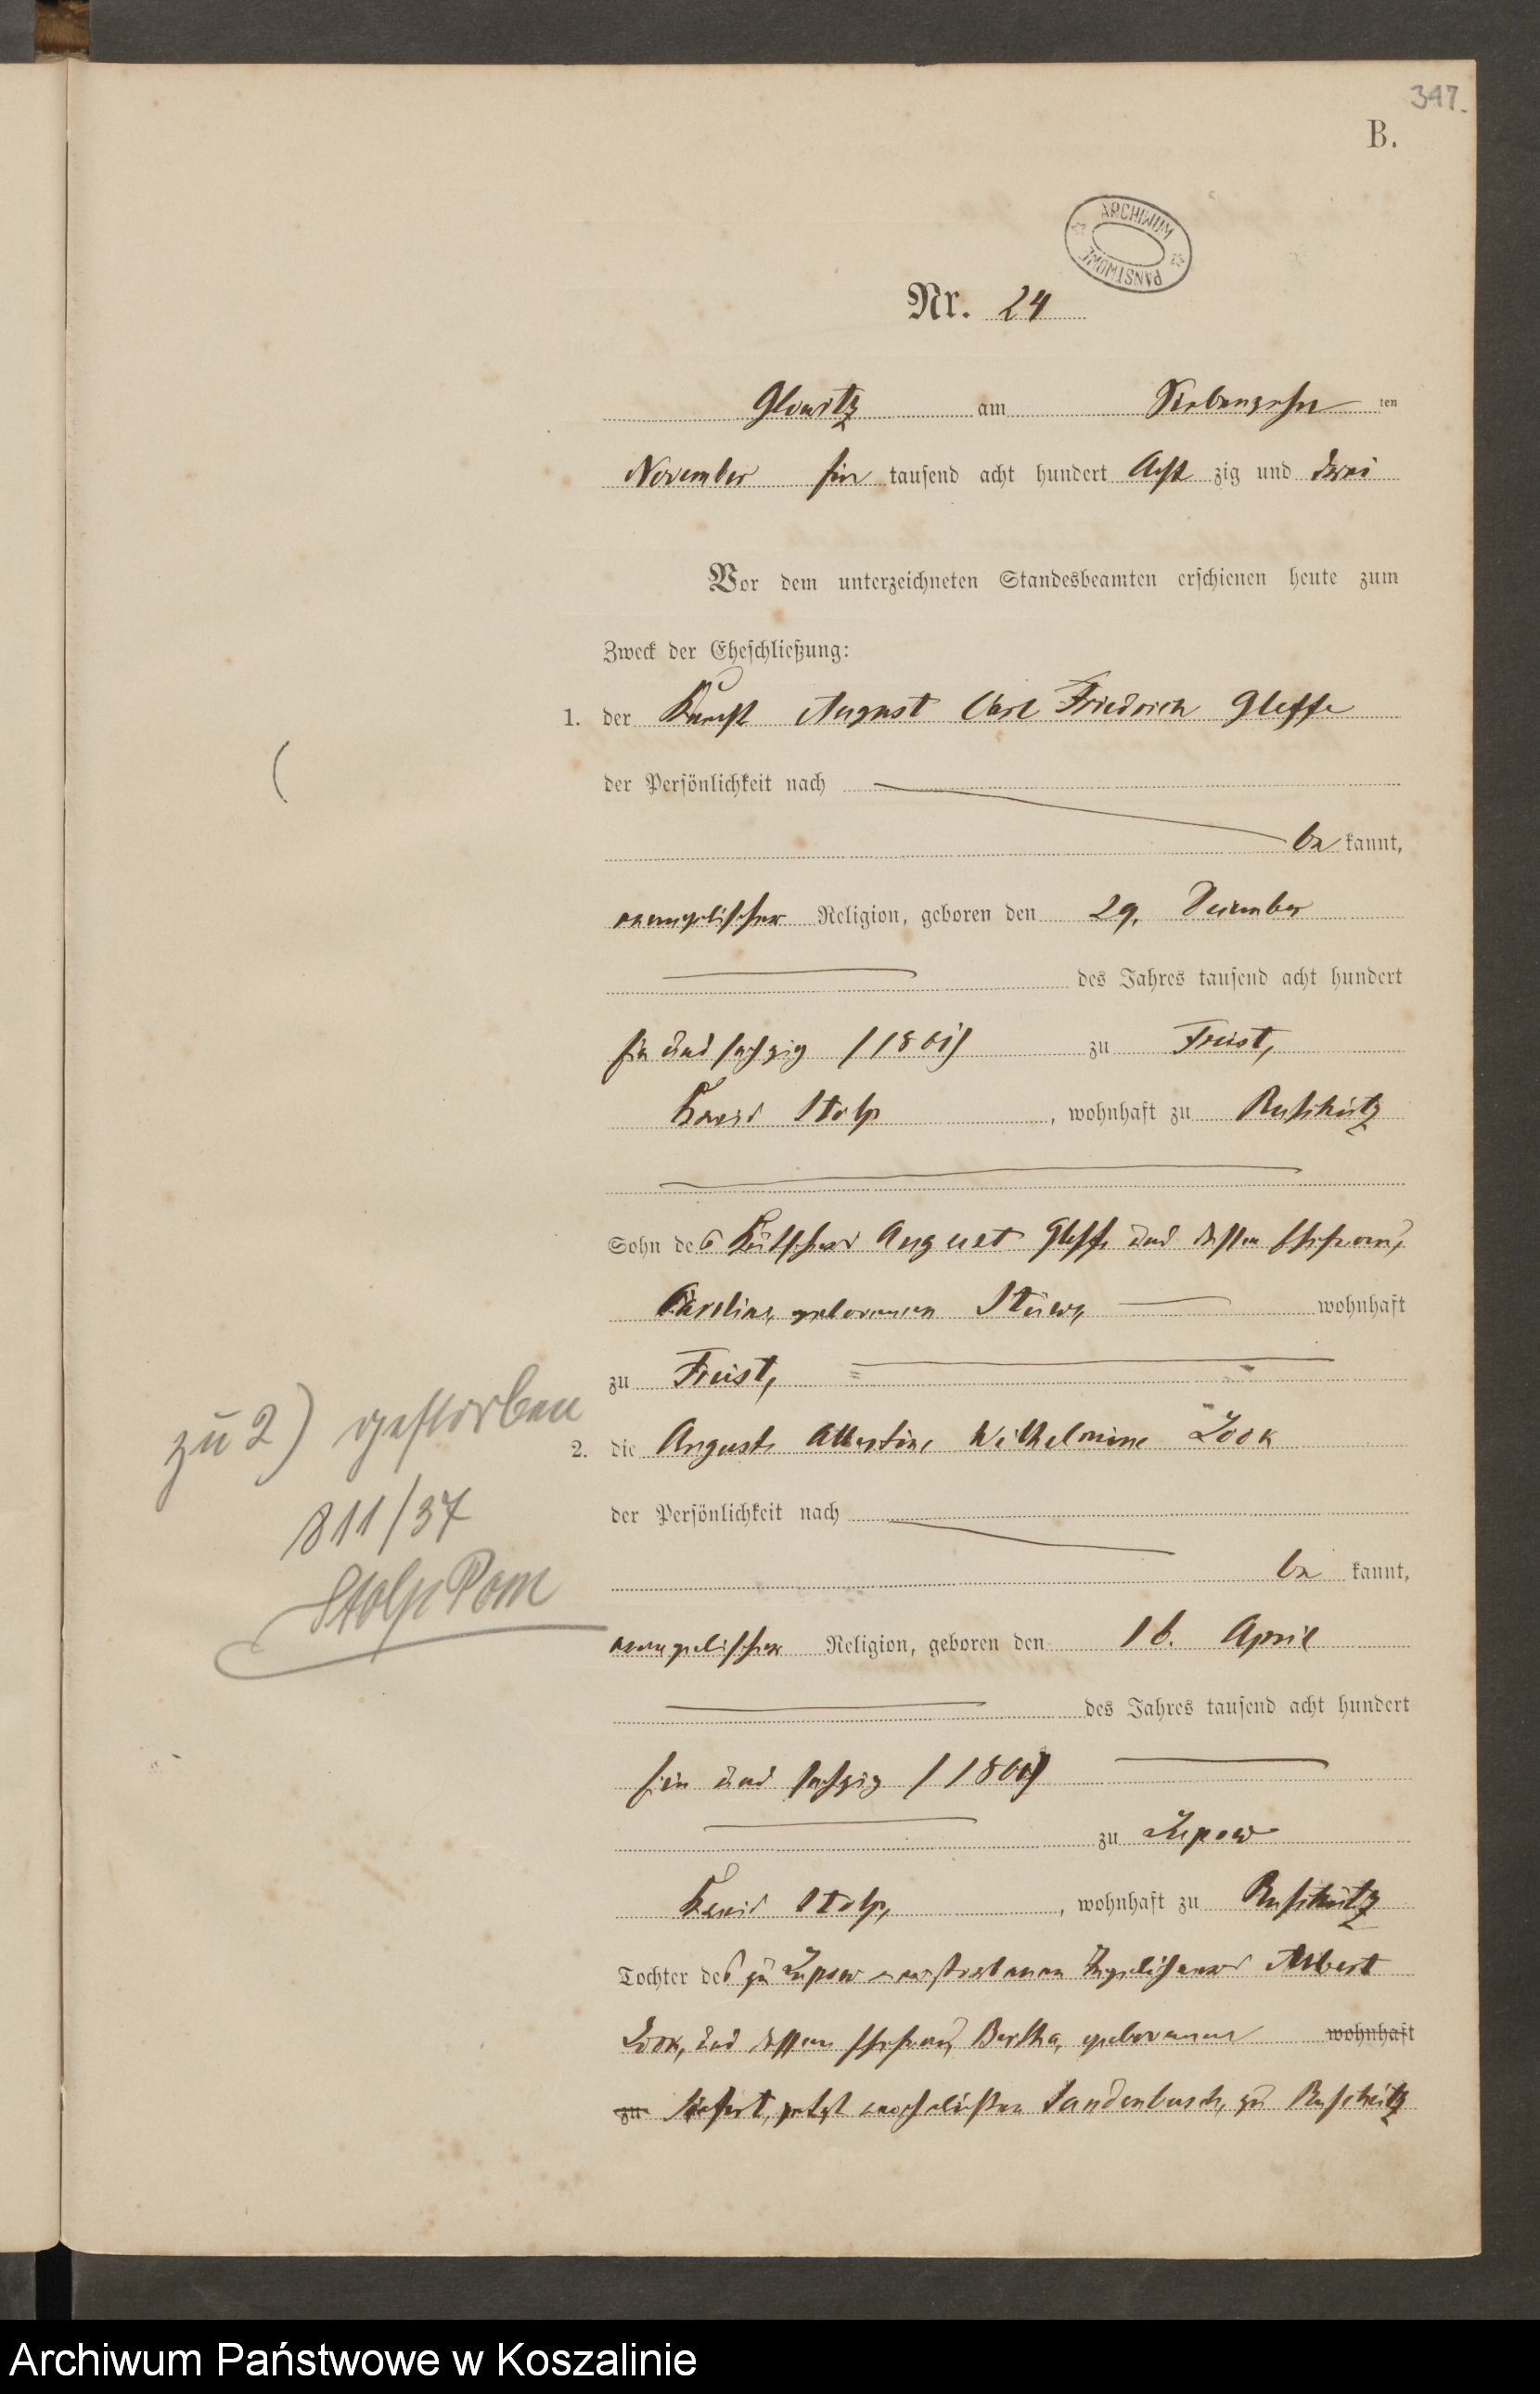 347.
B.
ARCHIWUM PAŃSTWOWE
Nr. 24
Glowitz am Siebenzehn ten
November ein tausend acht hundert Acht zig und zwei
Vor dem unterzeichneten Standesbeamten erschienen heute zum
Zweck der Eheschließung:
1. der Knecht August Carl Friedrich
der Persönlichkeit nach
be kannt,
evangelischer Religion, geboren den 29. Dezember
des Jahres tausend acht hundert
ein und sechzig (1861) zu Freist,
Kreis Stolp, wohnhaft zu Ruschütz
Sohn des August und dessen Ehefrau,
Caroline, geborenen Stüwe, wohnhaft
zu Freist,
2. die Auguste Albertine Wilhelmine Look
der Persönlichkeit nach
be kannt,
evangelischer Religion, geboren den 16. April
des Jahres tausend acht hundert
ein und sechzig (1861)
zu Lupow
Kreis Stolp, wohnhaft zu Ruschütz
Tochter des zu Lupow verstorbenen Albert
Look, und dessen Ehefrau, Bertha, geborenen wohnhaft
zu jetzt verehelichten zu Ruschütz
zu 2) gestorben
811/37
Stolp Pom
Archiwum Państwowe w Koszalinie